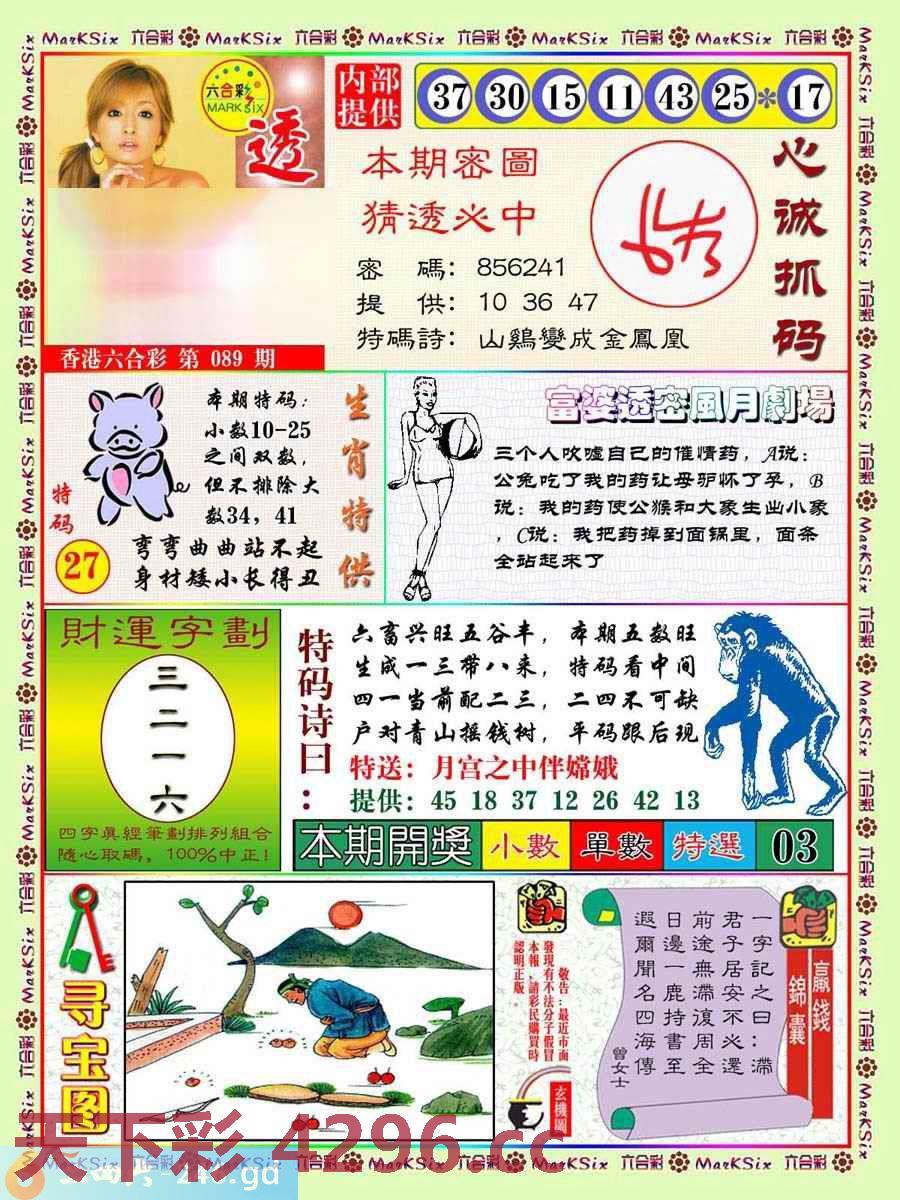 六合彩
MARK SIX
透
内部
提供
37 30 15 11 43 25 * 17
本期密圖
猜透必中
密 碼: 856241
提 供: 10 36 47
特碼詩: 山鷄變成金鳳凰
心诚抓码
香港六合彩 第 089 期
本期特码:
小数10-25
之间双数,
但不排除大
数34, 41
弯弯曲曲站不起
身材矮小长得丑
特码
27
生肖特供
富婆透密風月劇場
三个人吹嘘自己的催情药, A说:
公兔吃了我的药让母驴怀了孕, B
说: 我的药使公猴和大象生出小象
, C说: 我把药掉到面锅里, 面条
全站起来了
財運字劃
三
二
一
六
四字眞經筆劃排列組合
隨心取碼, 100%中正!
特码诗曰:
六畜兴旺五谷丰, 本期五数旺
生成一三带八来, 特码看中间
四一当前配二三, 二四不可缺
户对青山摇钱树, 平码跟后现
特送: 月宫之中伴嫦娥
提供: 45 18 37 12 26 42 13
本期開獎 小數 單數 特選 03
寻宝图
敬告:最近市面
發現有不法分子假冒
本報,請彩民購買時
認明正版。
玄機圖
一字記之曰:滯
君子居安不必還
前途無滯復周全
日邊一鹿持書至
遐爾聞名四海傳
曾女士
贏錢
錦囊
天下彩 4296.cc
MarKSix 六合彩 MarKSix 六合彩 MarKSix 六合彩 MarKSix 六合彩 MarKSix 六合彩